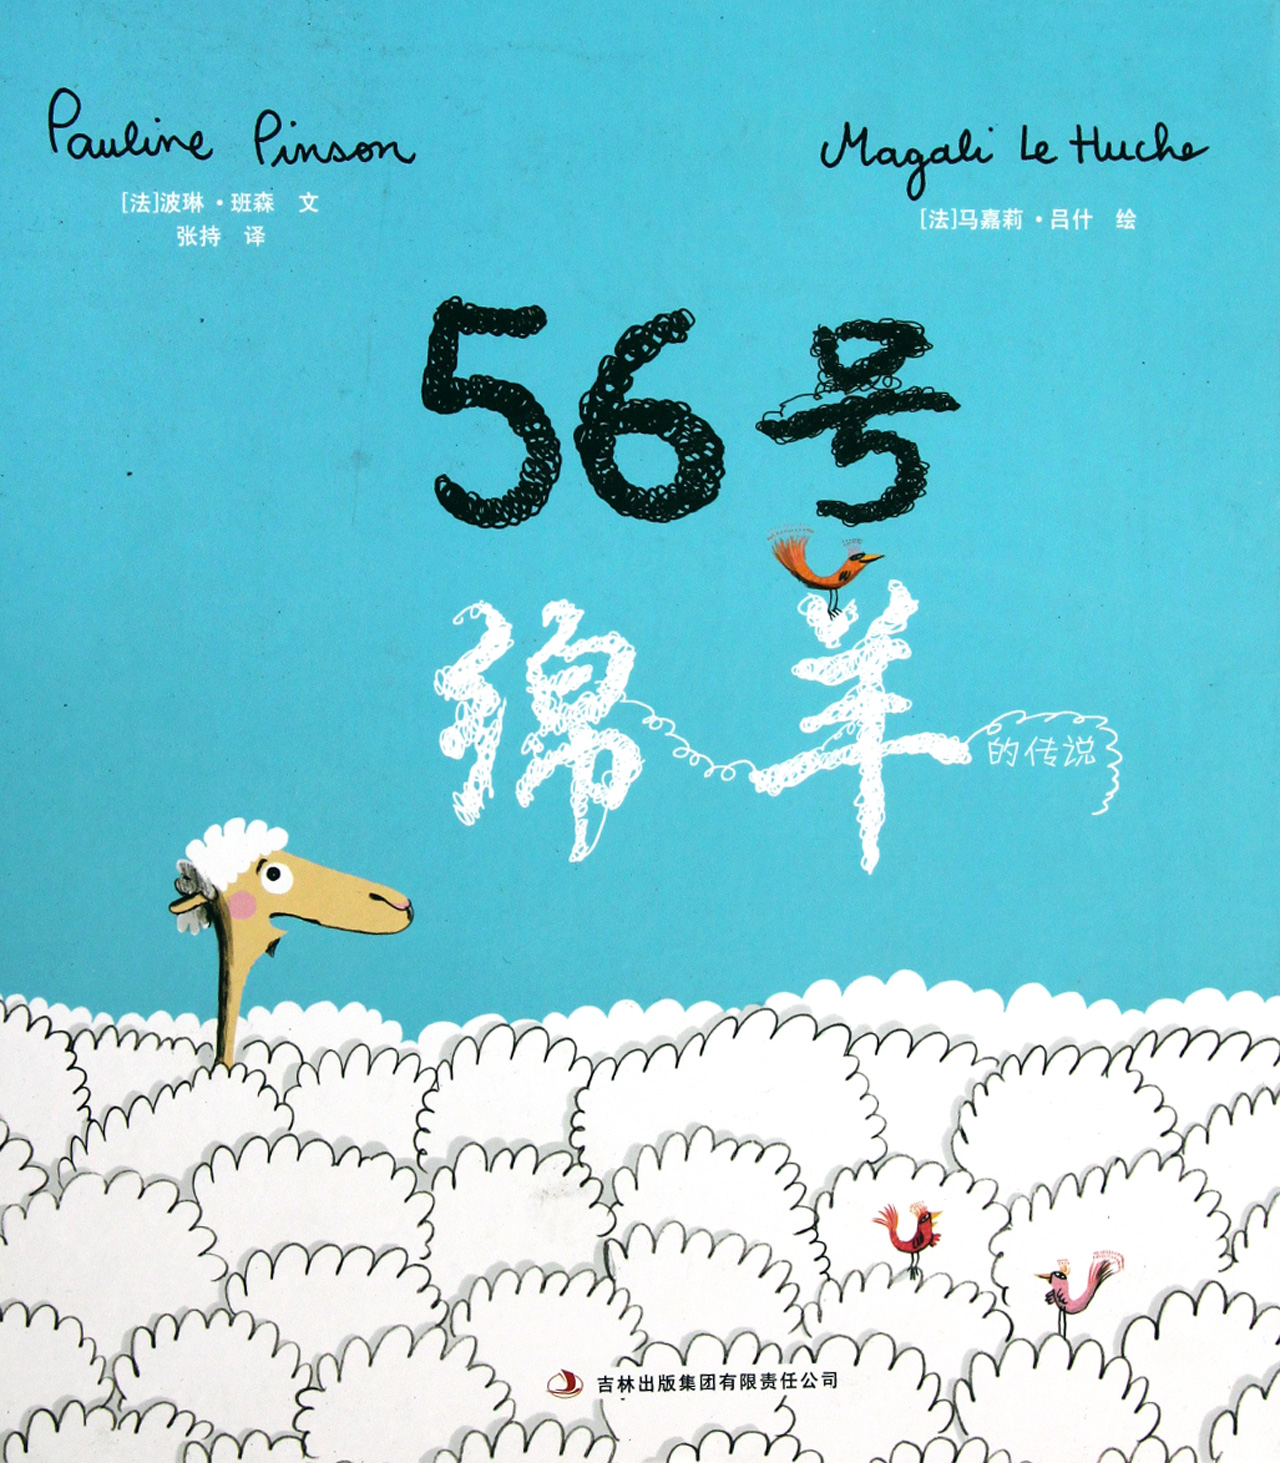 Pauline Pinson
[法]波琳·班森 文
张持 译
Magali Le Huche
[法]马嘉莉·吕什 绘
56号
绵羊
的传说
吉林出版集团有限责任公司